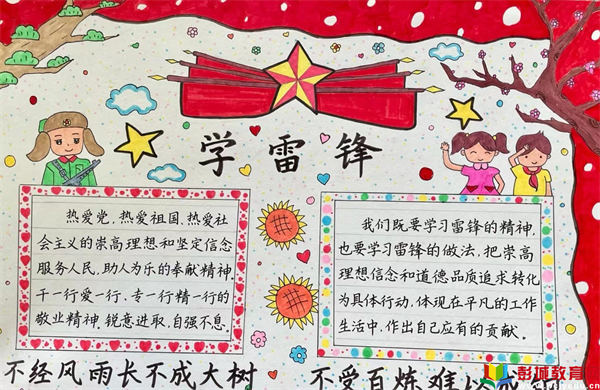 学雷锋
热爱党，热爱祖国，热爱社
会主义的崇高理想和坚定信念
服务人民，助人为乐的奉献精神
干一行爱一行，专一行精一行的
敬业精神，锐意进取，自强不息。
我们既要学习雷锋的精神，
也要学习雷锋的做法，把崇高
理想信念和道德品质追求转化
为具体行动，体现在平凡的工作
生活中，作出自己应有的贡献。
不经风雨长不成大树
不受百炼难以
彭城教育